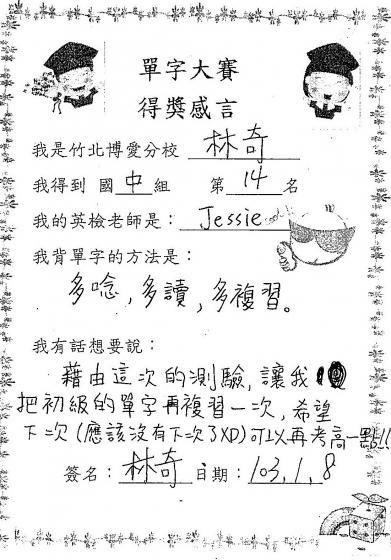 單字大賽
得獎感言
我是竹北博愛分校 林奇
我得到 國中組 第 14 名
我的英檢老師是：Jessie
我背單字的方法是：
多唸，多讀，多複習。
我有話想要說：
藉由這次的測驗，讓我
把初級的單字再複習一次，希望
下一次（應該沒有下一次了XD）可以再考高一點!!
簽名：林奇 日期：103.1.8